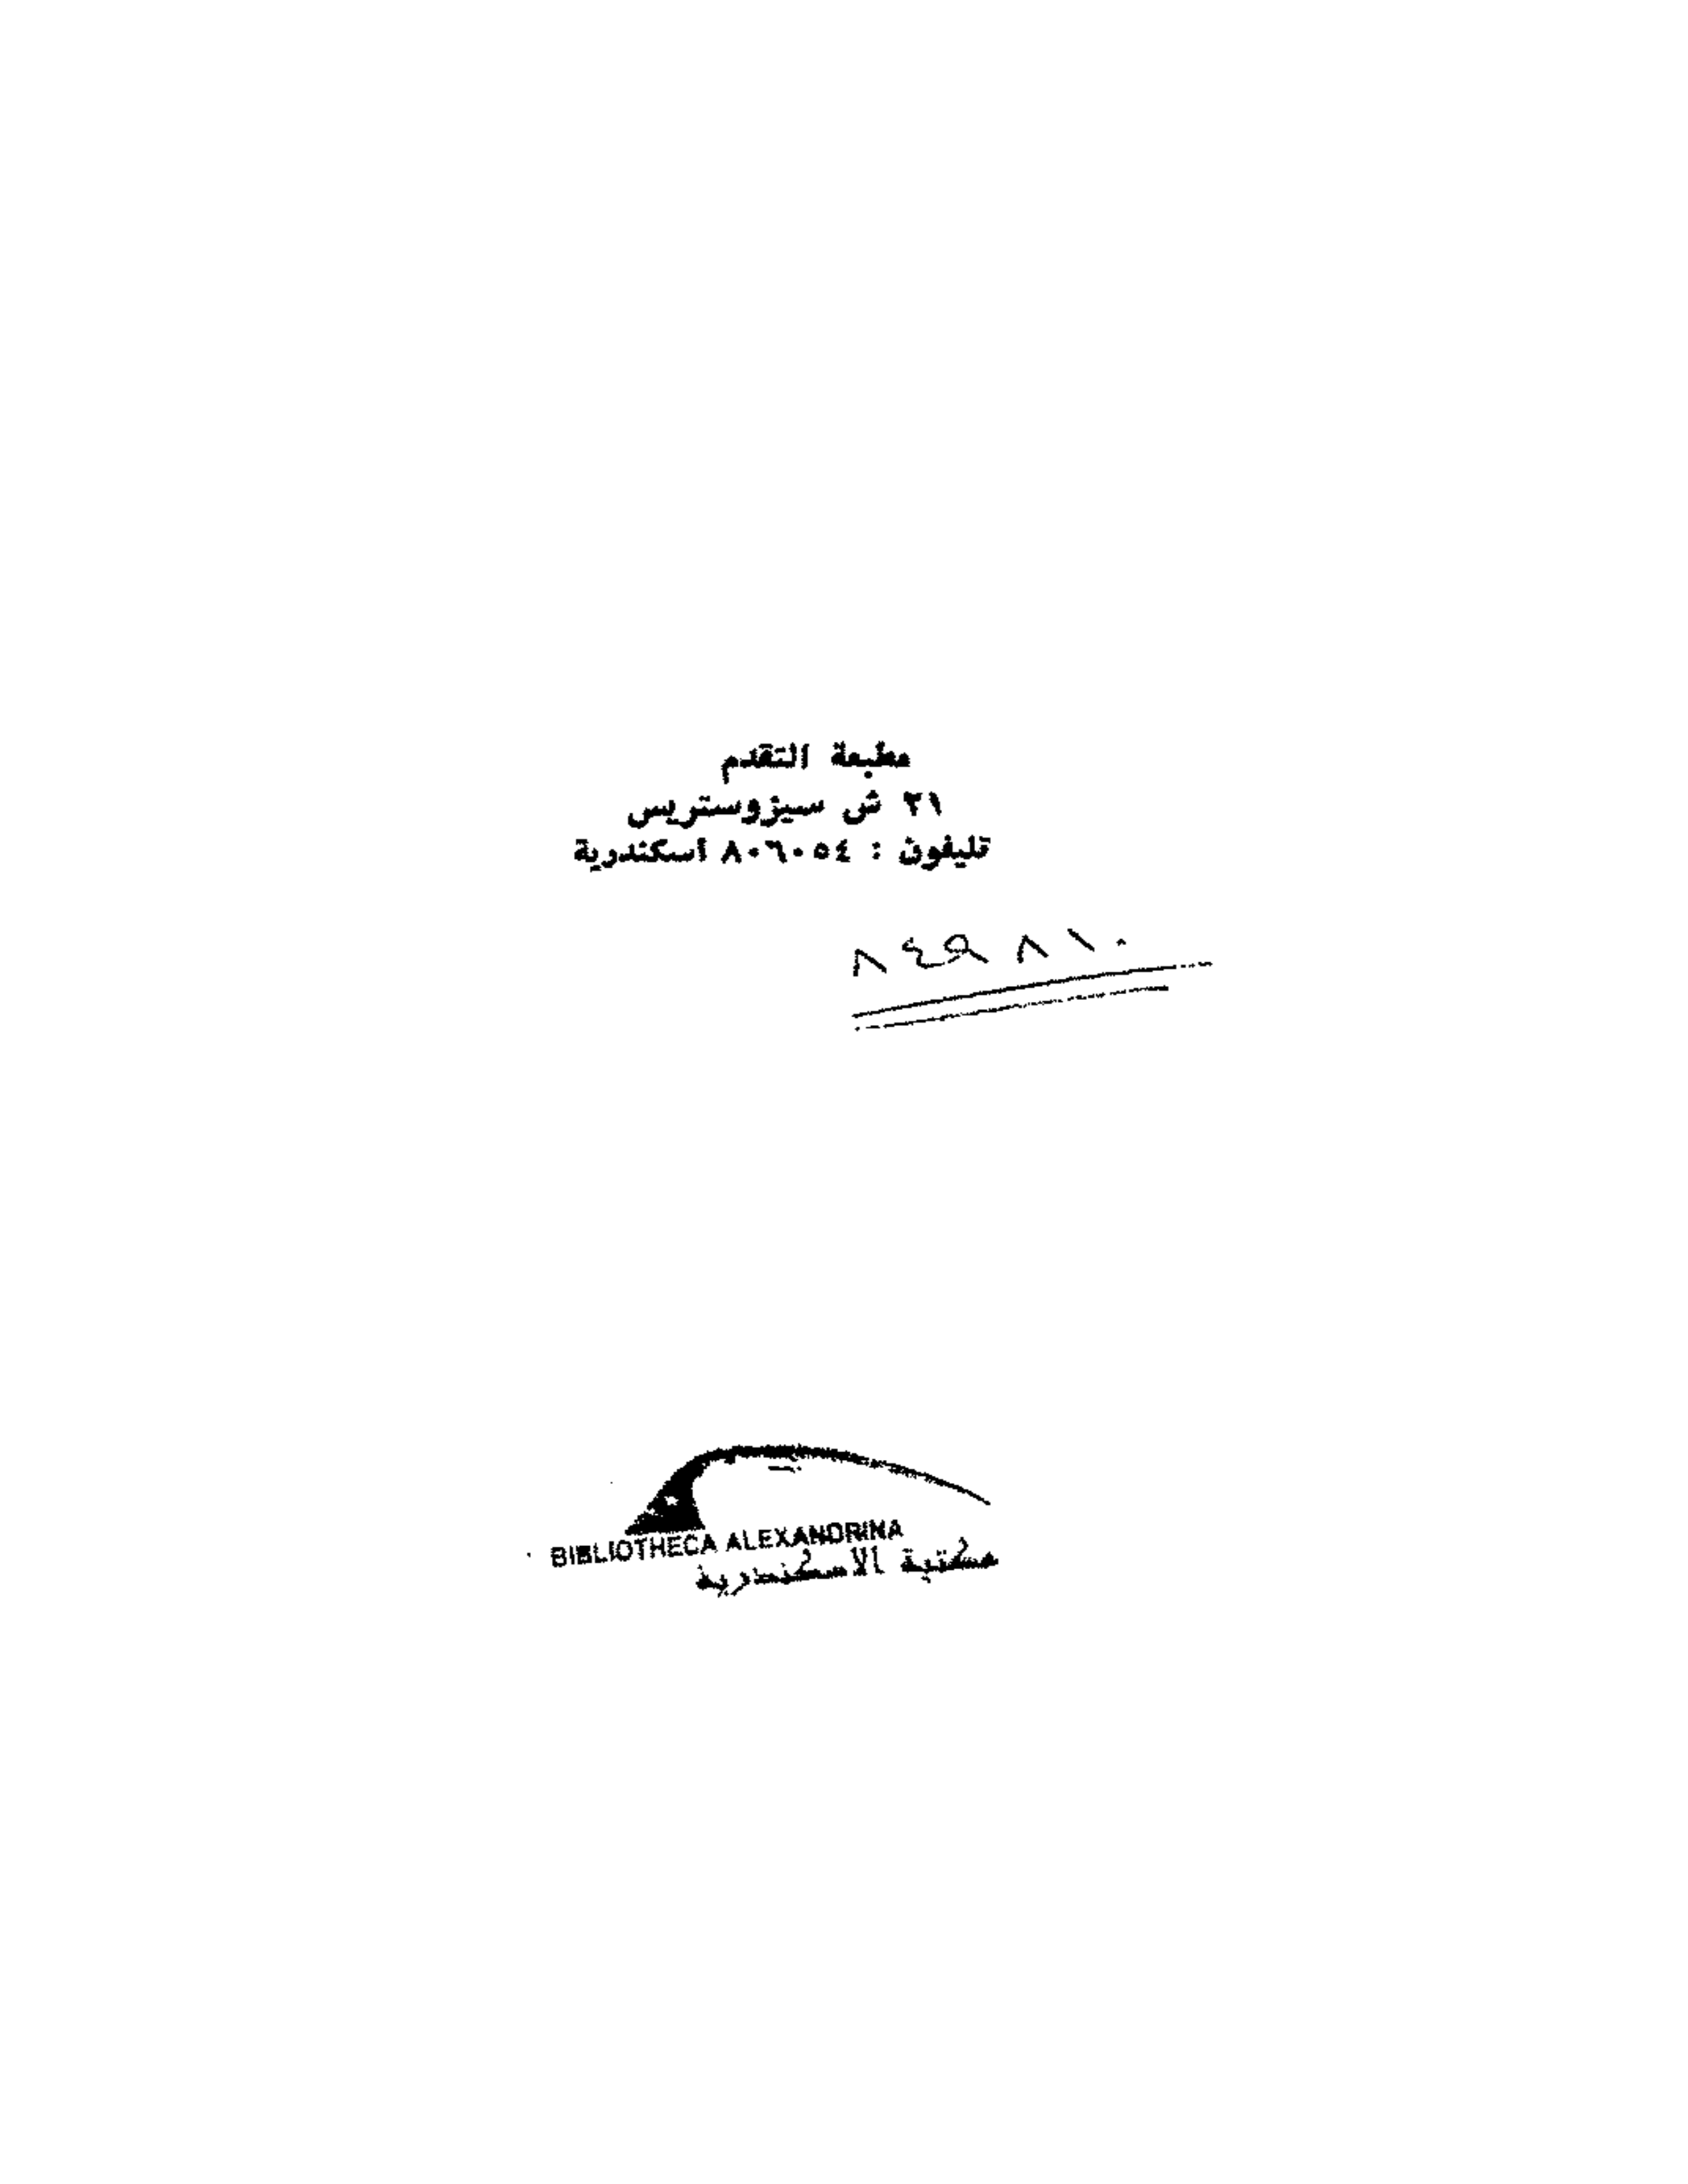 مطبعة التقدم
٢١ ش سيزوستريس
تليفون : ٨٠٦٠٥٤ اسكندرية
٨٤٩٨١٠
BIBLIOTHECA ALEXANDRINA
مكتبة الاسكندرية